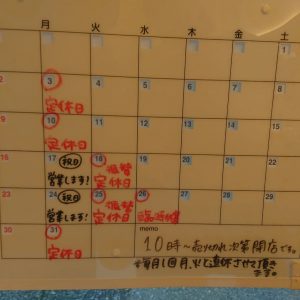 月 火 水 木 金 土
2 3 4 5 6 7 8
定休日
9 10 11 12 13 14 15
定休日
16 17 祝日 18 19 20 21 22
営業します! 振替
定休日
23 24 祝日 25 26 27 28 29
営業します! 振替
定休日
30 31 memo
定休日
10時〜売り切れ次第閉店です。
*毎月1回月、火と連休させて頂き
ます。